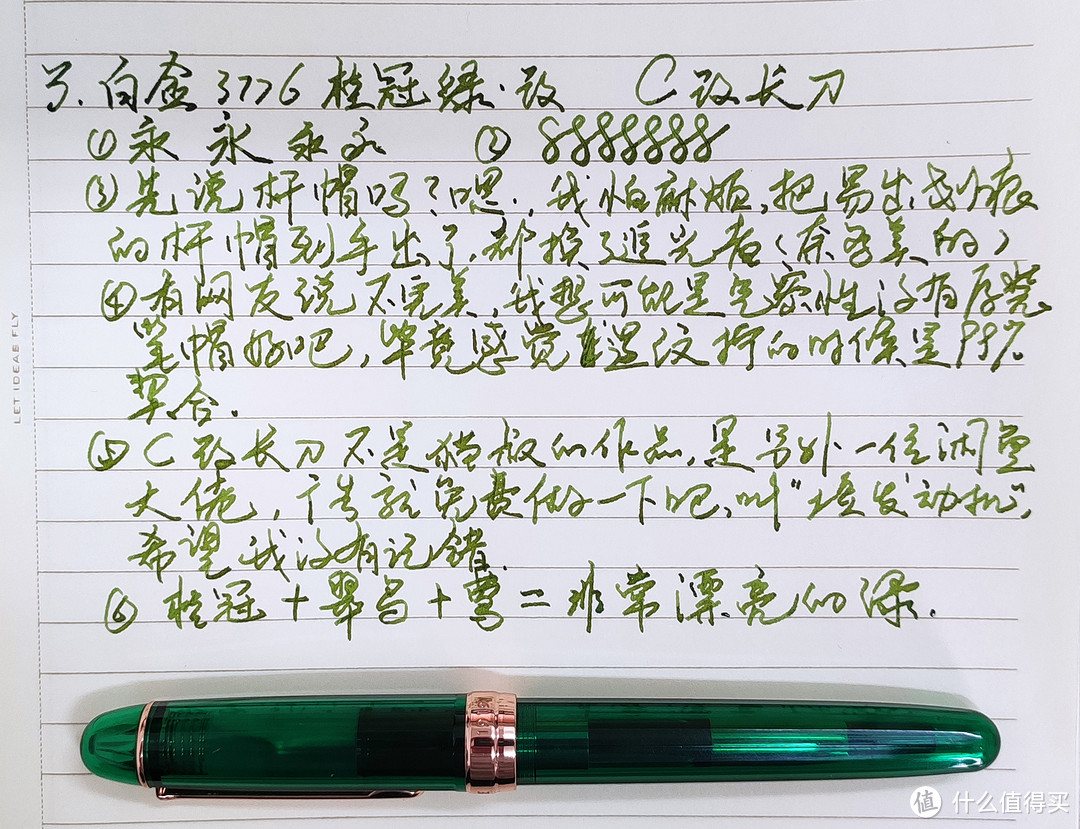 3.白金3776桂冠绿·改 C改长刀
①永 永 永永 ②8888888
③先说杆帽吗?嗯.,我怕麻烦,把易出划痕
的杆帽到手出了,都换了追光者(奈名美的)
④有网友说不完美,我想可能是气密性没有原装
笔帽好吧,毕竟感觉 拧的时候是99%
契合.
⑤C改长刀不是 的作品,是另外一位闲鱼
大佬,广告就免费做一下吧,叫“ 发动机”,
希望我没有记错.
⑥桂冠+翠鸟+莺=非常漂亮的绿.
LET IDEAS FLY
值 什么值得买